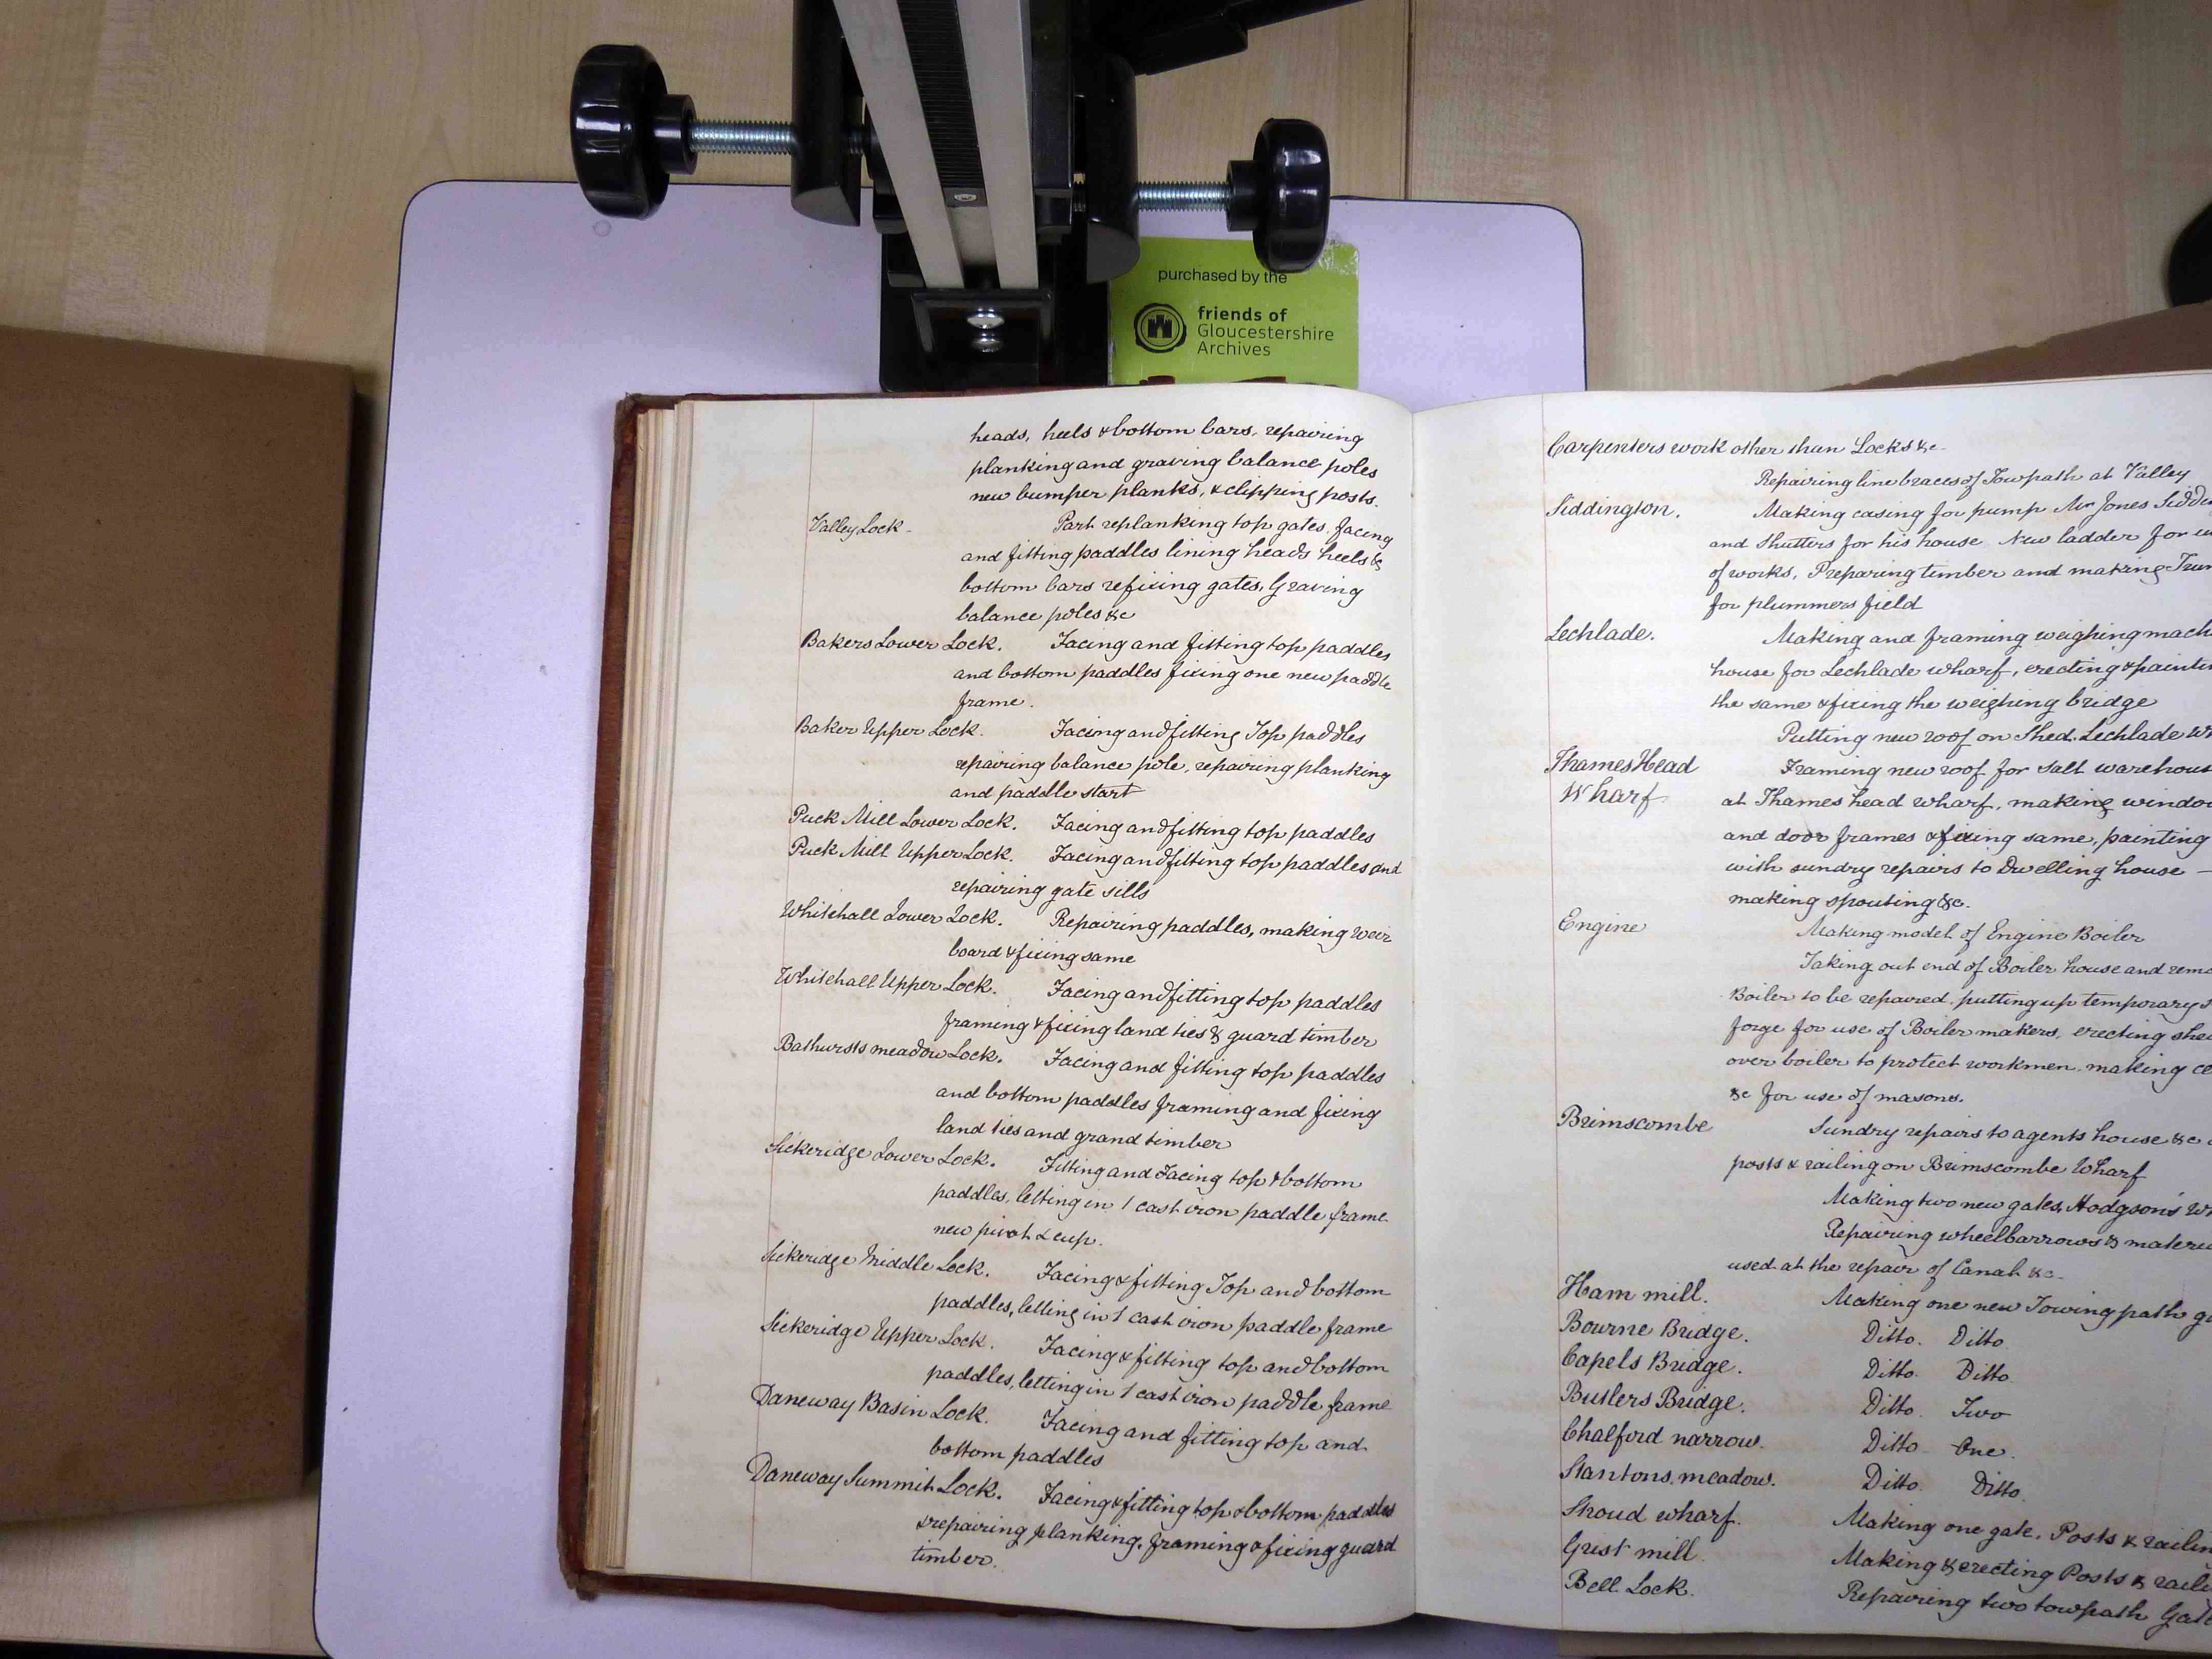 purchased by the
friends of
Gloucestershire
Archives
heads, heels & bottom bars, repairing
planking and graving balance poles
new bumper planks, & clipping posts.
Valley Lock. Part replanking top gates, facing
and fitting paddles lining heads heels &
bottom bars refixing gates, Graving
balance poles &c
Bakers Lower Lock. Facing and fitting top paddles
and bottom paddles fixing one new paddle
frame.
Baker Upper Lock. Facing and fitting Top paddles
repairing balance pole, repairing planking
and paddle start
Puck Mill Lower Lock. Facing and fitting top paddles
Puck Mill Upper Lock. Facing and fitting top paddles and
repairing gate sills
Whitehall Lower Lock. Repairing paddles, making weir
board & fixing same
Whitehall Upper Lock. Facing and fitting top paddles
framing & fixing land ties & guard timber
Bathursts meadow Lock. Facing and fitting top paddles
and bottom paddles framing and fixing
land ties and grand timber
Sickeridge Lower Lock. Fitting and Facing top & bottom
paddles, letting in 1 cast iron paddle frame
new pivot & cup.
Sickeridge Middle Lock. Facing & fitting Top and bottom
paddles, letting in 1 cast iron paddle frame
Sickeridge Upper Lock. Facing & fitting top and bottom
paddles, letting in 1 cast iron paddle frame
Daneway Basin Lock. Facing and fitting top and
bottom paddles
Daneway Summit Lock. Facing & fitting top & bottom paddles
& repairing planking, framing & fixing guard
timber.
Carpenters work other than Locks &c
Repairing line braces of Towpath at Valley
Siddington. Making casing for pump Mr Jones
and Shutters for his house New ladder for
of works, Preparing timber and making
for plummers field
Lechlade. Making and framing weighing
house for Lechlade wharf, erecting &
the same & fixing the weighing bridge
Putting new roof on Shed. Lechlade
Thames Head Framing new roof for Salt
Wharf at Thames head wharf, making
and door frames & fixing same, painting
with sundry repairs to Dwelling house —
making spouting &c.
Engine Making model of Engine Boiler
Taking out end of Boiler house and
Boiler to be repaired, putting up temporary
forge for use of Boiler makers, erecting
over boiler to protect workmen, making
&c for use of masons.
Brimscombe Sundry repairs to agents house &c
posts & railing on Brimscombe Wharf
Making two new gates, Hodgson's
Repairing wheelbarrows &
used at the repair of Canal &c.
Ham mill. Making one new Towing path
Bourne Bridge. Ditto. Ditto
Capels Bridge. Ditto. Ditto
Butlers Bridge. Ditto. Two
Chalford narrow. Ditto One.
Stantons meadow. Ditto. Ditto.
Stroud wharf. Making one gate, Posts &
Grist mill. Making & erecting Posts &
Bell Lock. Repairing two towpath